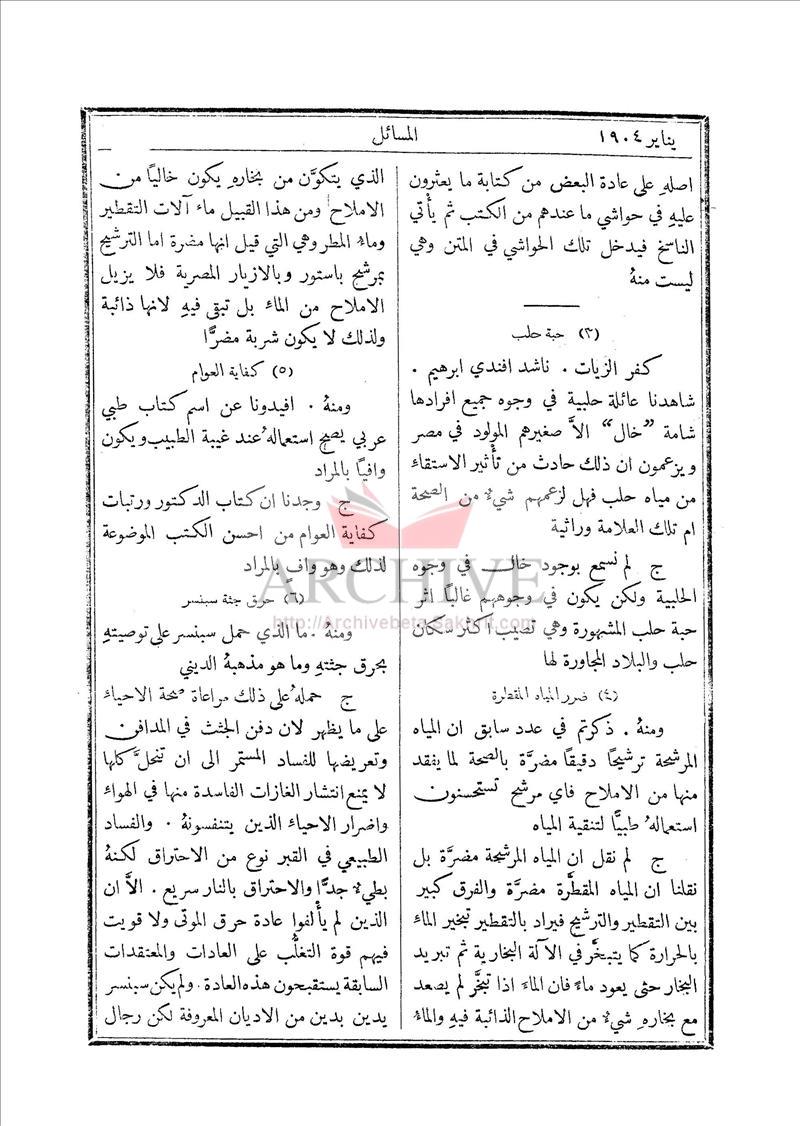 يناير ١٩٠٤
المسائل
اصلهِ على عادة البعض من كتابة ما يعثرون
عليهِ في حواشي ما عندهم من الكتب ثم يأتي
الناسخ فيدخل تلك الحواشي في المتن وهي
ليست منهُ
(٣) حبة حلب
كفر الزيات . ناشد افندي ابرهيم .
شاهدنا عائلة حلبية في وجوه جميع افرادها
شامة ”خال“ الاَّ صغيرهم المولود في مصر
ويزعمون ان ذلك حادث من تأثير الاستقاء
من مياه حلب فهل لزعمهم شيءٌ من الصحة
ام تلك العلامة وراثية
ج لم نسمع بوجود خالٍ في وجوه
الحلبية ولكن يكون في وجوههم غالبًا اثر
حبة حلب المشهورة وهي تصيب اكثر سكان
حلب والبلاد المجاورة لها
(٤) ضرر المياه المقطرة
ومنهُ . ذكرتم في عدد سابق ان المياه
المرشحة ترشيحًا دقيقًا مضرَّة بالصحة لما يفقد
منها من الاملاح فاي مرشح تستحسنون
استعمالهُ طبيًّا لتنقية المياه
ج لم نقل ان المياه المرشحة مضرَّة بل
نقلنا ان المياه المقطَّرة مضرَّة والفرق كبير
بين التقطير والترشيح فيراد بالتقطير تبخير الماء
بالحرارة كما يتبخَّر في الآلة البخارية ثم تبريد
البخار حتى يعود ماءً فان الماء اذا تبخَّر لم يصعد
مع بخارهِ شيءٌ من الاملاح الذائبة فيهِ والماء
الذي يتكوَّن من بخارهِ يكون خاليًا من
الاملاح ومن هذا القبيل ماء آلات التقطير
وماء المطر وهي التي قيل انها مضرة اما الترشيح
بمرشح باستور وبالازيار المصرية فلا يزيل
الاملاح من الماء بل تبقى فيهِ لانها ذائبة
ولذلك لا يكون شربهُ مضرًّا
(٥) كفاية العوام
ومنهُ . افيدونا عن اسم كتاب طبي
عربي يصح استعمالهُ عند غيبة الطبيب ويكون
وافيًا بالمراد
ج وجدنا ان كتاب الدكتور ورتبات
كفاية العوام من احسن الكتب الموضوعة
لذلك وهو وافٍ بالمراد
(٦) حرق جثة سبنسر
ومنهُ . ما الذي حمل سبنسر على توصيتهِ
بحرق جثتهِ وما هو مذهبهُ الديني
ج حملهُ على ذلك مراعاة صحة الاحياء
على ما يظهر لان دفن الجثث في المدافن
وتعريضها للفساد المستمر الى ان تنحلَّ كلها
لا يمنع انتشار الغازات الفاسدة منها في الهواء
واضرار الاحياء الذين يتنفسونهُ . والفساد
الطبيعي في القبر نوع من الاحتراق لكنهُ
بطيءٌ جدًّا والاحتراق بالنار سريع . الاَّ ان
الذين لم يألفوا عادة حرق الموتى ولا قويت
فيهم قوة التغلُّب على العادات والمعتقدات
السابقة يستقبحون هذه العادة . ولم يكن سبنسر
يدين بدين من الاديان المعروفة لكن رجال
ARCHIVE
http://Archivebeta.Sakhrit.com